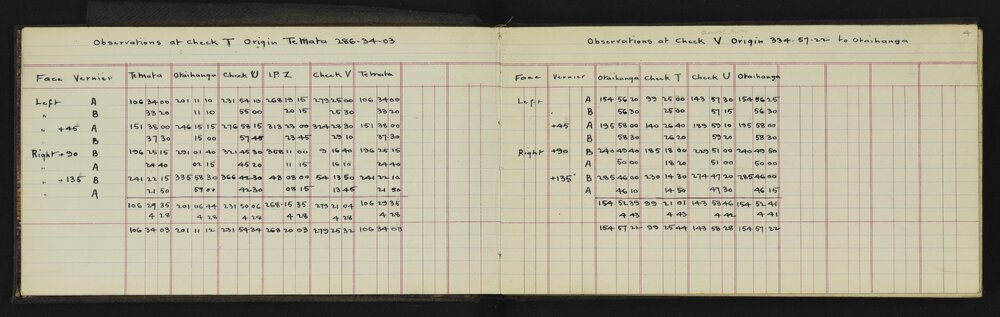 Observations at Check T Origin Te Mata 286-34-03
Face Vernier Te Mata Otaihanga Check U I.P. Z Check V Te Mata
Left A 106 34 00 201 11 10 231 54 10 268 19 15 279 25 00 106 34 00
" B 33 20 11 10 55 00 20 15 25 30 33 20
" +45° A 151 38 00 246 15 15 276 58 15 313 23 00 324 28 30 151 38 00
" B 37 30 15 00 57 45 23 45 29 10 37 30
Right +90 B 196 25 15 291 01 40 321 45 30 358 11 00 9 16 40 196 25 15
" A 24 40 02 15 45 20 11 15 16 10 24 40
" +135° B 241 22 15 335 58 30 366 42 30 43 08 00 54 13 50 241 22 10
" A 21 50 59 00 42 30 08 15 13 45 21 50
106 29 35 201 06 44 231 50 06 268 15 35 279 21 04 106 29 35
4 28 4 28 4 28 4 28 4 28 4 28
106 34 03 201 11 12 231 54 34 268 20 03 279 25 32 106 34 03
4
Observations at Check V Origin 334-57-22 to Otaihanga
Face Vernier Otaihanga Check T Check U Otaihanga
Left A 154 56 20 99 25 00 143 57 30 154 56 25
" B 56 30 25 30 57 15 56 30
+45° A 195 58 00 140 26 40 189 59 10 195 58 00
B 58 30 26 20 59 20 58 30
Right +90 B 240 49 40 185 18 00 229 51 00 240 49 50
A 50 00 18 20 51 00 50 00
+135° B 285 46 00 230 14 30 274 47 20 285 46 00
A 46 10 14 50 47 30 46 15
154 52 39 99 21 01 143 53 46 154 52 41
4 43 4 43 4 42 4 41
154 57 22 99 25 44 143 58 28 154 57 22